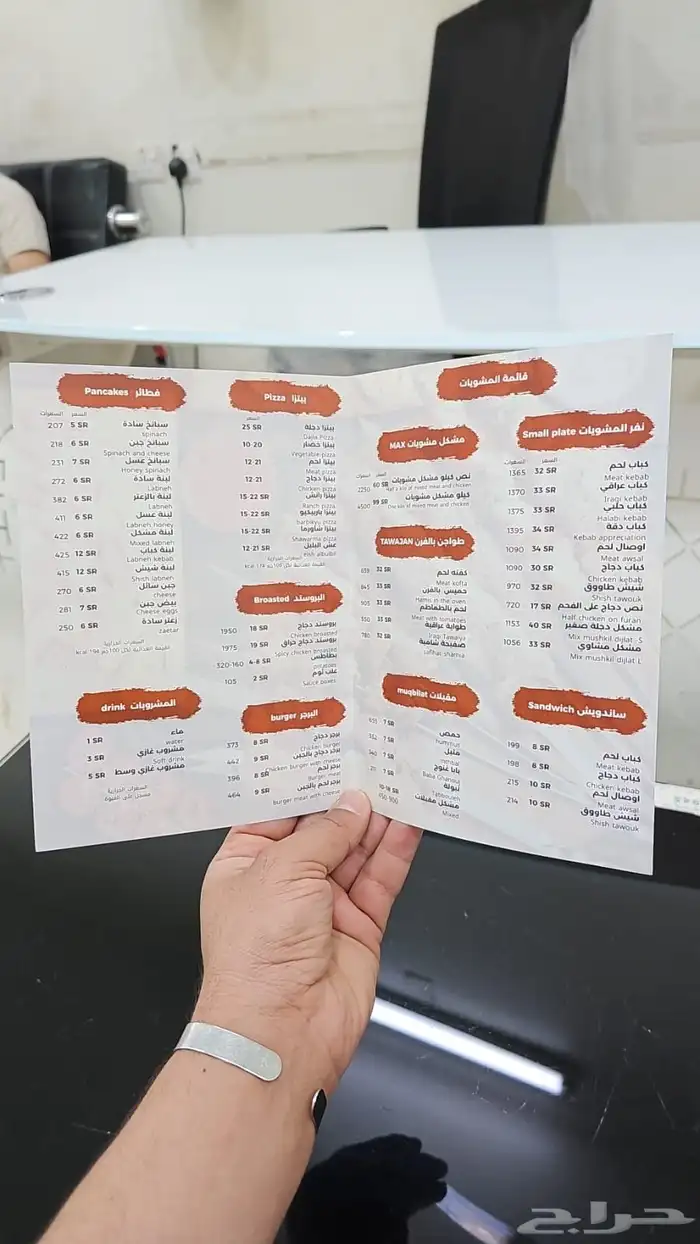 فطائر Pancakes
السعر السعرات
سبانخ سادة 5 SR 207
Spinach
سبانخ جبن 6 SR 218
Spinach and cheese
سبانخ عسل 7 SR 231
Honey spinach
لبنة سادة 6 SR 272
Labneh
لبنة بالزعتر 6 SR 382
Labneh
لبنة عسل 6 SR 411
Labneh honey
لبنة مشكل 6 SR 422
Mixed labneh
لبنة كباب 12 SR 425
Labneh kebab
لبنة شيش 12 SR 415
Shish labneh
جبن سائل 6 SR 270
cheese
بيض جبن 7 SR 281
Cheese eggs
زعتر سادة 6 SR 250
zaetar
السعرات الحرارية
المشروبات drink
ماء 1 SR
water
مشروب غازي 3 SR
Soft drink
مشروب غازي وسط 5 SR
السعرات الحرارية
بيتزا Pizza
السعر السعرات
بيتزا دجلة 25 SR
Dajla Pizza
بيتزا خضار 10-20
Vegetable pizza
بيتزا لحم 12-21
Meat pizza
بيتزا دجاج 12-21
Chicken pizza
بيتزا رانش 15-22 SR
Ranch pizza
بيتزا باربيكيو 15-22 SR
barbikyu pizza
بيتزا شاورما 15-22 SR
Shawarma pizza
عش البلبل 12-21 SR
eish albulbil
السعرات الحرارية
البروستد Broasted
بروستد دجاج 18 SR 1950
Chicken broasted
بروستد دجاج حراق 19 SR 1975
Spicy chicken broasted
بطاطس 4-8 SR 320-160
potatoes
علب ثوم 2 SR 105
Sauce boxes
البرجر burger
برجر دجاج 8 SR 373
Chicken burger
برجر دجاج بالجبن 9 SR 442
Chicken burger with cheese
برجر لحم 8 SR 396
Burger meat
برجر لحم بالجبن 9 SR 464
Burger meat with cheese
قائمة المشويات
مشكل مشويات MAX
السعر السعرات
نص كيلو مشكل مشويات 60 SR 2250
Half a kilo of mixed meat and chicken
كيلو مشكل مشويات 99 SR 4500
طواجن بالفرن TAWAJAN
كفته لحم 32 SR
Meat kofta
حميس بالفرن 33 SR
Hamis in the oven
لحم بالطماطم 33 SR
Meat with tomatoes
طواية عراقية 33 SR
Iraqi Tawaiya
صفيحة شامية 32 SR 780
safihat shamia
مقبلات muqbilat
حمص 7 SR
hummus
متبل 7 SR
mtribal
بابا غنوج 7 SR
Baba Ghanouj
تبولة 7 SR
Tabbouleh
مشكل مقبلات 10-18 SR
Mixed
نفر المشويات Small plate
السعر السعرات
كباب لحم 32 SR 1365
Meat kebab
كباب عراقي 33 SR 1370
Iraqi kebab
كباب حلبي 33 SR 1375
Halabi kebab
كباب دقة 34 SR 1395
Kebab appreciation
اوصال لحم 34 SR 1090
Meat awsal
كباب دجاج 30 SR 1090
Chicken kebab
شيش طاووق 32 SR 970
Shish tawouk
نص دجاج على الفحم 17 SR 720
Half chicken on furan
مشكل دجلة صغير 40 SR 1153
Mix mushkil dijlat S
مشكل مشاوي 33 SR 1056
Mix mushkil dijlat L
ساندويش Sandwich
كباب لحم 8 SR 199
Meat kebab
كباب دجاج 8 SR 198
Chicken kebab
اوصال لحم 10 SR 215
Meat awsal
شيش طاووق 10 SR 214
Shish tawouk
حراج